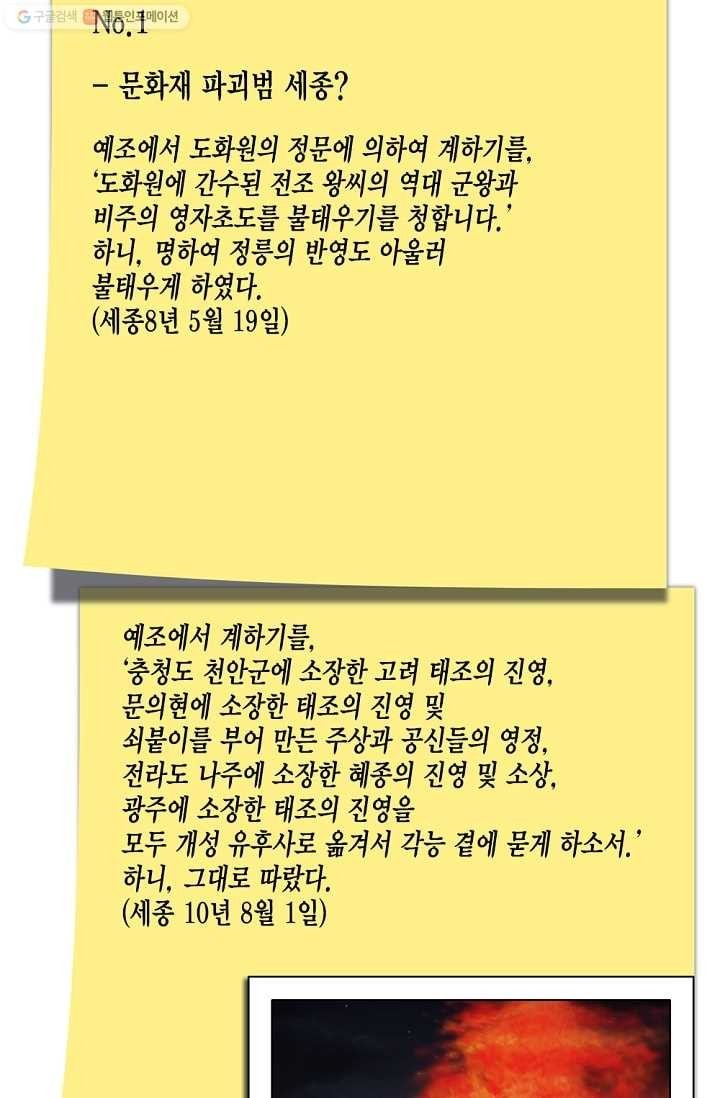 구글검색 웹툰인포메이션
No.1
- 문화재 파괴범 세종?
예조에서 도화원의 정문에 의하여 계하기를,
‘도화원에 간수된 전조 왕씨의 역대 군왕과
비주의 영자초도를 불태우기를 청합니다.’
하니, 명하여 정릉의 반영도 아울러
불태우게 하였다.
(세종8년 5월 19일)
예조에서 계하기를,
‘충청도 천안군에 소장한 고려 태조의 진영,
문의현에 소장한 태조의 진영 및
쇠붙이를 부어 만든 주상과 공신들의 영정,
전라도 나주에 소장한 혜종의 진영 및 소상,
광주에 소장한 태조의 진영을
모두 개성 유후사로 옮겨서 각능 곁에 묻게 하소서.’
하니, 그대로 따랐다.
(세종 10년 8월 1일)